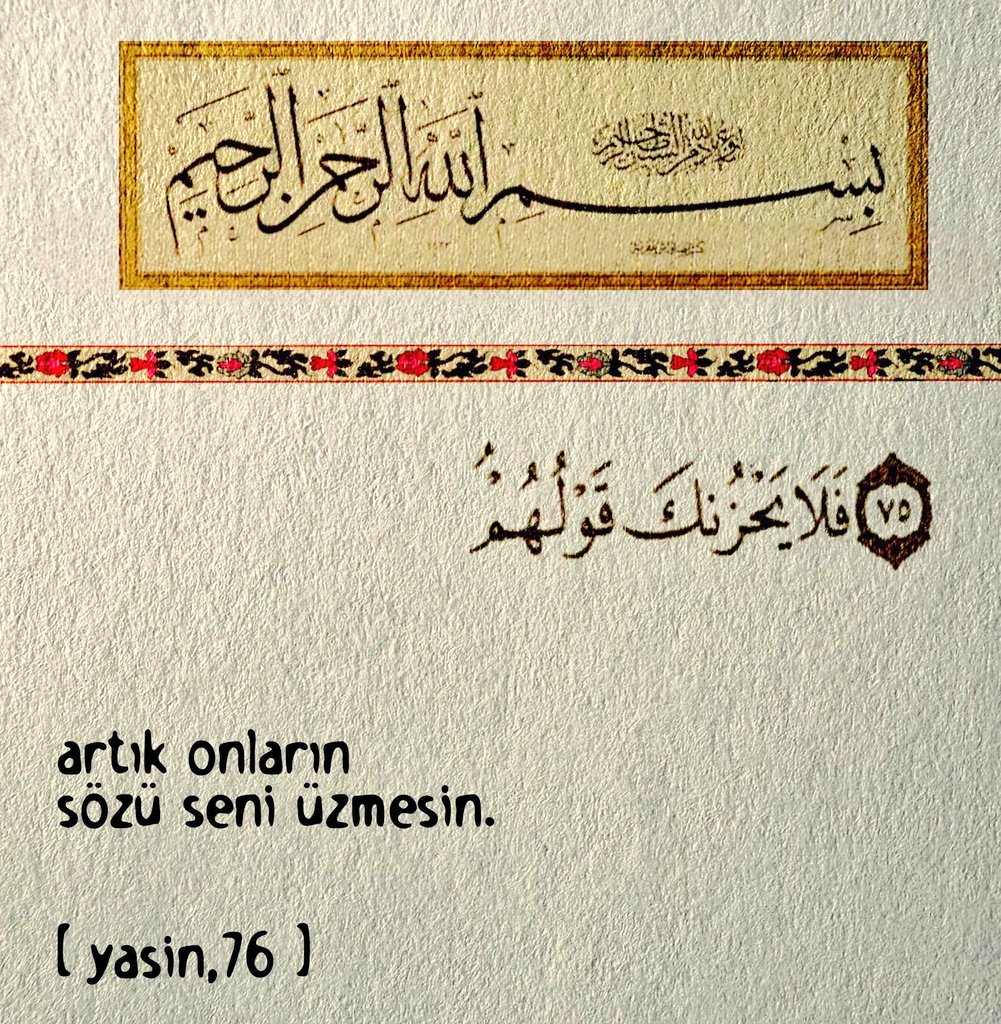 بِسْمِ اللَّهِ الرَّحْمٰنِ الرَّحِيمِ
٧٥ فَلَا يَحْزُنْكَ قَوْلُهُمْۘ
artık onların
sözü seni üzmesin.
[ yasin,76 ]